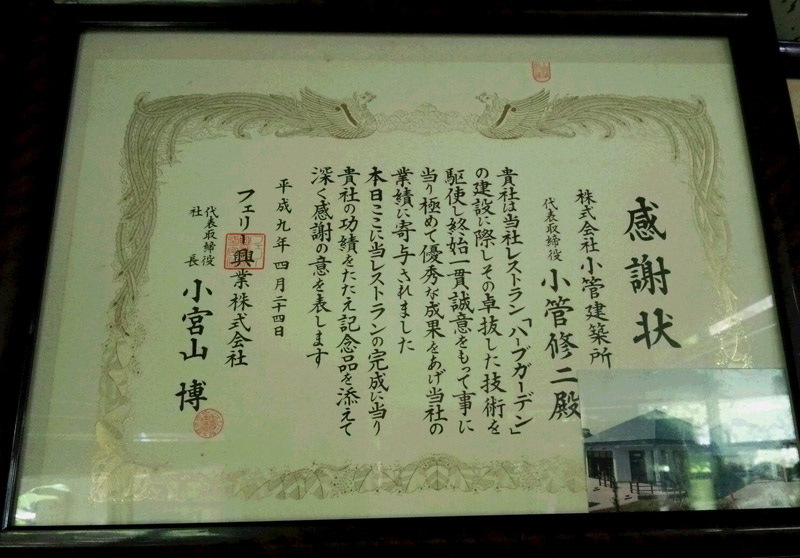 感謝状
株式会社小管建築所
代表取締役 小管修二殿
貴社は当社レストラン「ハーブガーデン」
の建設に際しその卓抜した技術を
駆使し終始一貫誠意をもって事に
当り極めて優秀な成果をあげ当社の
業績に寄与されました
本日ここに当レストランの完成に当り
貴社の功績をたたえ記念品を添えて
深く感謝の意を表します
平成九年四月二十四日
フェリー興業株式会社
代表取締役
社長 小宮山博